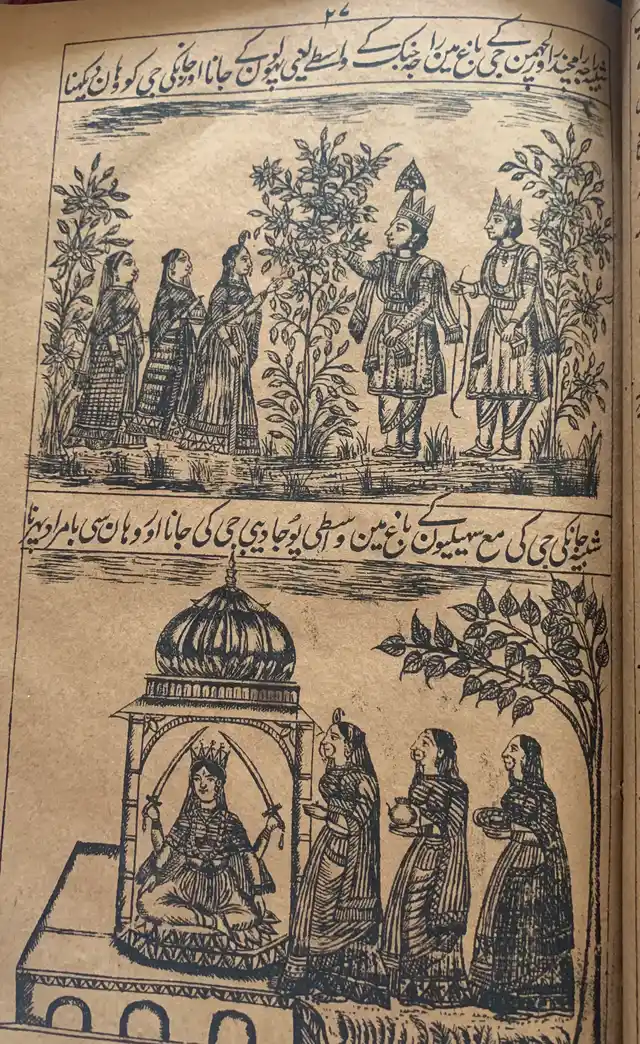 ٢٧
شبیہ راجہ رامچندر اور لچھمن کے جی باغ مین راجہ جنک کے واسطے لینی پھولون کے جانا اور جانکی جی کو وہان دیکھنا
شبیہ جانکی جی کی مع سہیلیون کے باغ مین واسطی پوجا دیبی جی کی جانا اور وہان سی بامراد پہرنا